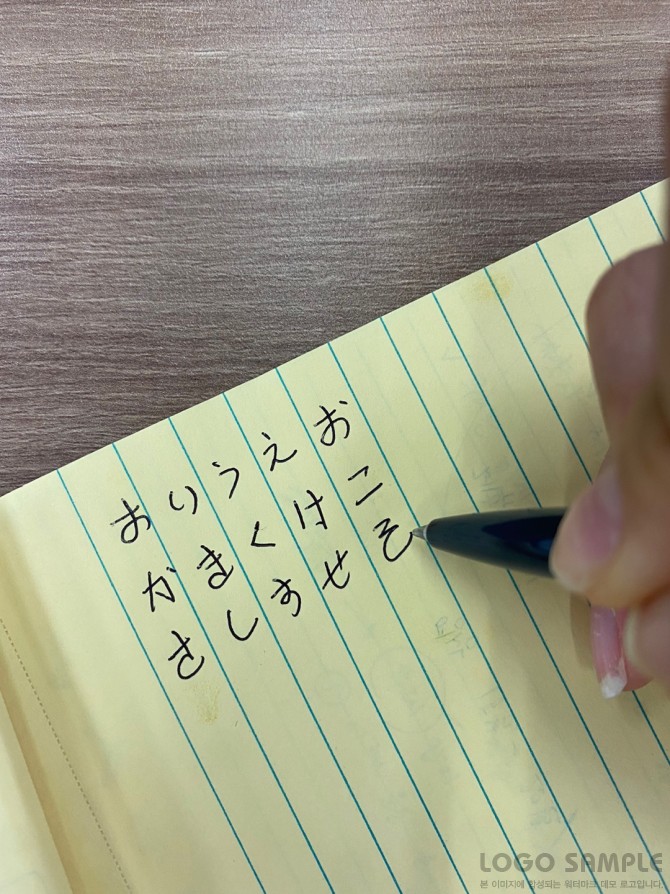 おいうえお
かきくけこ
さしすせそ
LOGO SAMPLE
본 이미지에 합성되는 워터마크 데모 로고입니다.